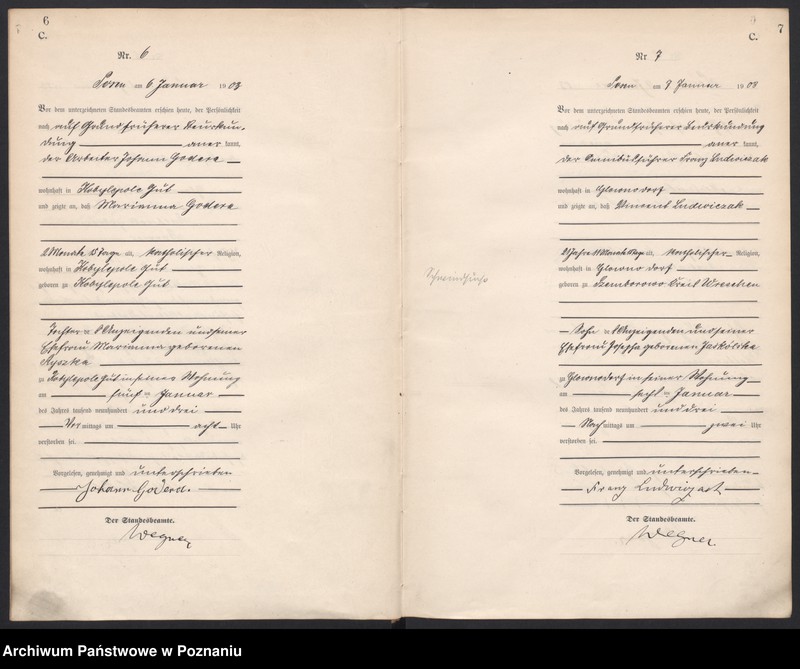 6
C.
Nr. 6
Posen am 6 Januar 1903
Vor dem unterzeichneten Standesbeamten erschien heute, der Persönlichkeit
nach auf Grund früherer Beurkun-
dung anerkannt,
der Arbeiter Johann Godera
wohnhaft in Kobylepole Gut
und zeigte an, daß Marianna Godera
2 Monate 13 Tage alt, katholischer Religion,
wohnhaft in Kobylepole Gut
geboren zu Kobylepole Gut
Tochter des Anzeigenden und seiner
Ehefrau Marianna geborenen
zu Kobylepole Gut in seiner Wohnung
am fünften Januar
des Jahres tausend neunhundert und drei
Vormittags um acht Uhr
verstorben sei.
Vorgelesen, genehmigt und unterschrieben
Johann Godera.
Der Standesbeamte.
Wegner
7
C.
Nr. 7
Posen am 7 Januar 1903
Vor dem unterzeichneten Standesbeamten erschien heute, der Persönlichkeit
nach auf Grund früherer Beurkundung
anerkannt,
der Omnibusführer Franz Ludwiczak
wohnhaft in Glowno dorf
und zeigte an, daß Vincent Ludwiczak
21 Jahre 11 Monate Tage alt, katholischer Religion,
wohnhaft in Glowno dorf
geboren zu Szemborowo Kreis Wreschen
Sohn des Anzeigenden und seiner
Ehefrau Josepha geborenen Jaskólska
zu Glowno dorf in seiner Wohnung
am sechsten Januar
des Jahres tausend neunhundert und drei
Nachmittags um zwei Uhr
verstorben sei.
Vorgelesen, genehmigt und unterschrieben
Franz
Der Standesbeamte.
Wegner.
Schwindsucht
Archiwum Państwowe w Poznaniu